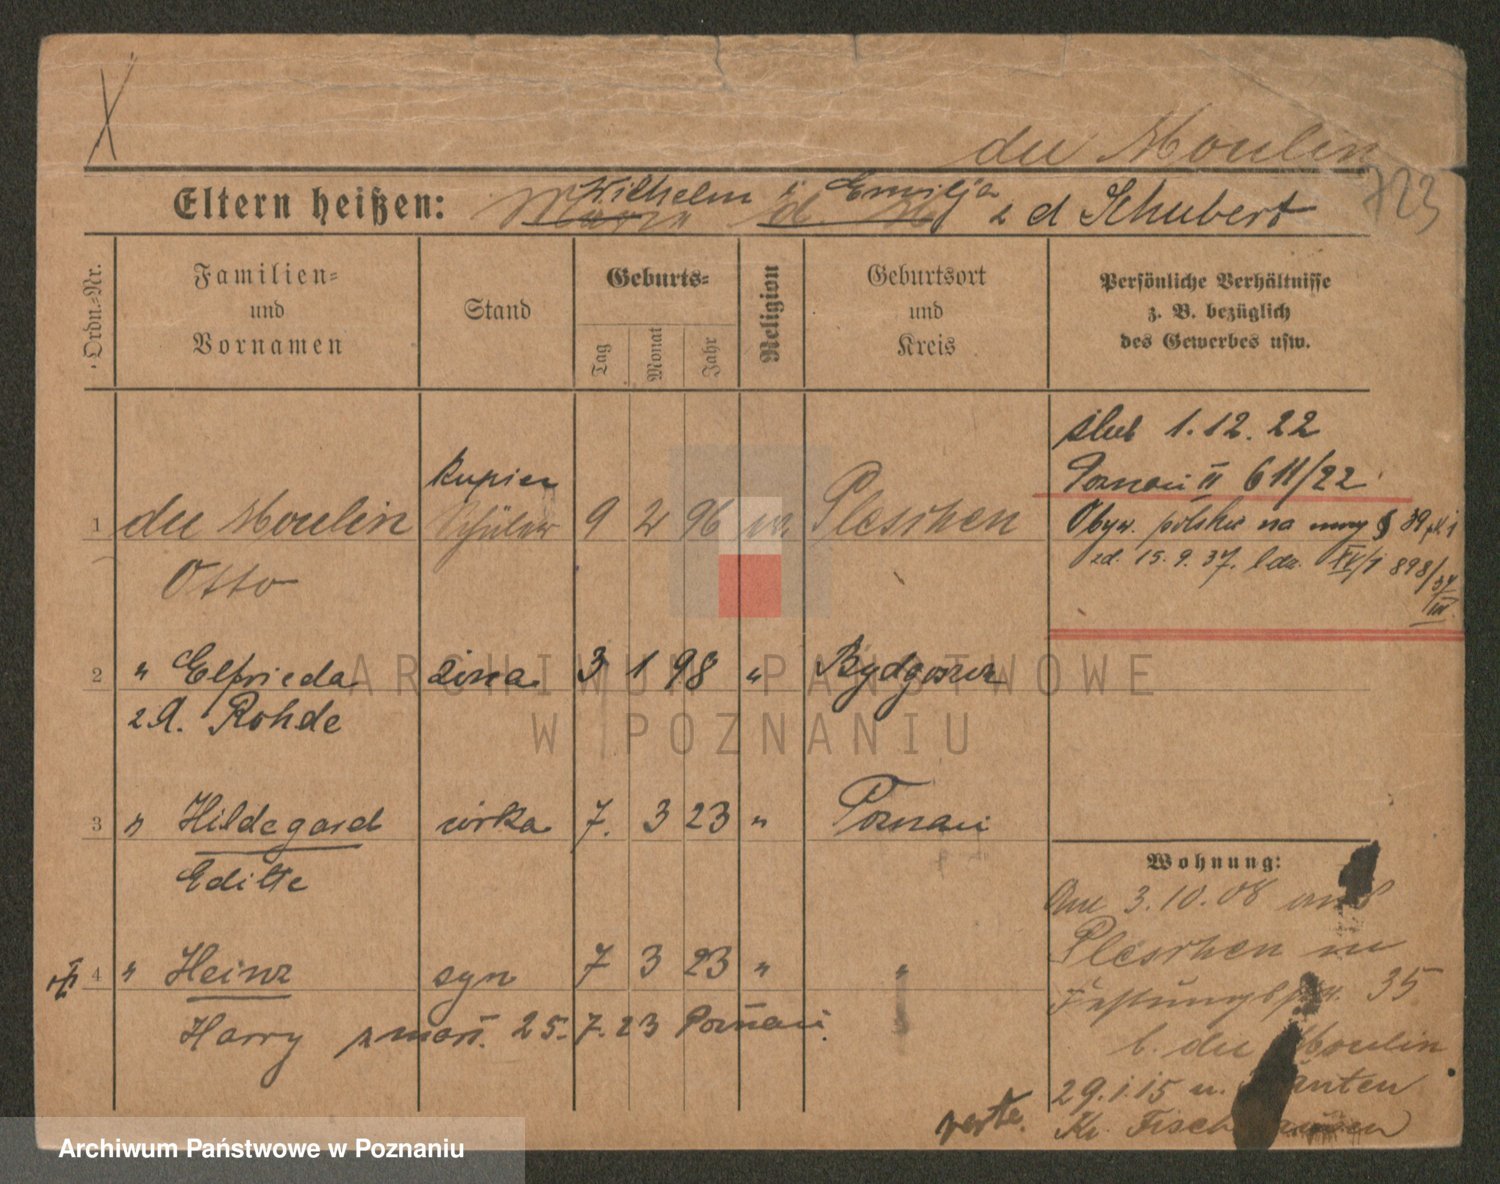 du Moulin
723
Eltern heißen: Wilhelm i Emilja z d Schubert
Ordn.-Nr.
Familien-
und
Vornamen
Stand
Geburts-
Tag
Monat
Jahr
Religion
Geburtsort
und
Kreis
Persönliche Verhältnisse
z. B. bezüglich
des Gewerbes usw.
ślub 1.12.22
Poznań II 611/22
Obyw. polskie na mocy § 39
zd. 15.9.37. ldz. 898/37
kupiec
1 du Moulin Schüler 9 2 96 Pleschen
Otto
2 " Elfrieda żona 3 1 98 " Bydgoszcz
z d. Rohde
3 " Hildegard córka 7. 3 23 " Poznań
Edith
4 " Heinz syn 7 3 23 " "
Harry zmarł. 25.7.23 Poznań.
Wohnung:
Am 3.10.08 aus
Pleschen
Festungsstr. 35
b. du Moulin
29.1.15 n.
Kr. Fischhausen
verte.
ARCHIWUM PAŃSTWOWE
W POZNANIU
Archiwum Państwowe w Poznaniu